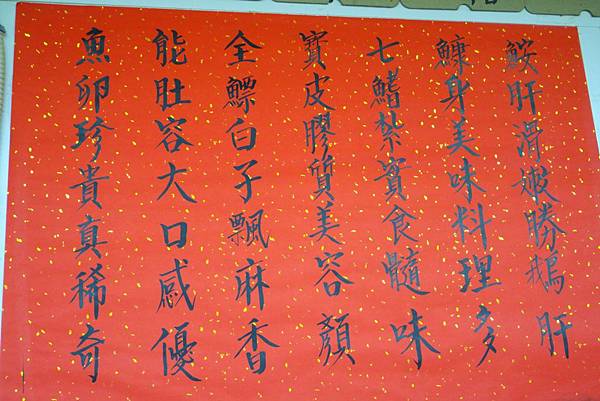 鮟肝滑嫩勝鵝肝
鱇身美味料理多
七鰭紮實食髓味
寶皮膠質美容顏
全鰾白子飄麻香
能肚容大口感優
魚卵珍貴真稀奇